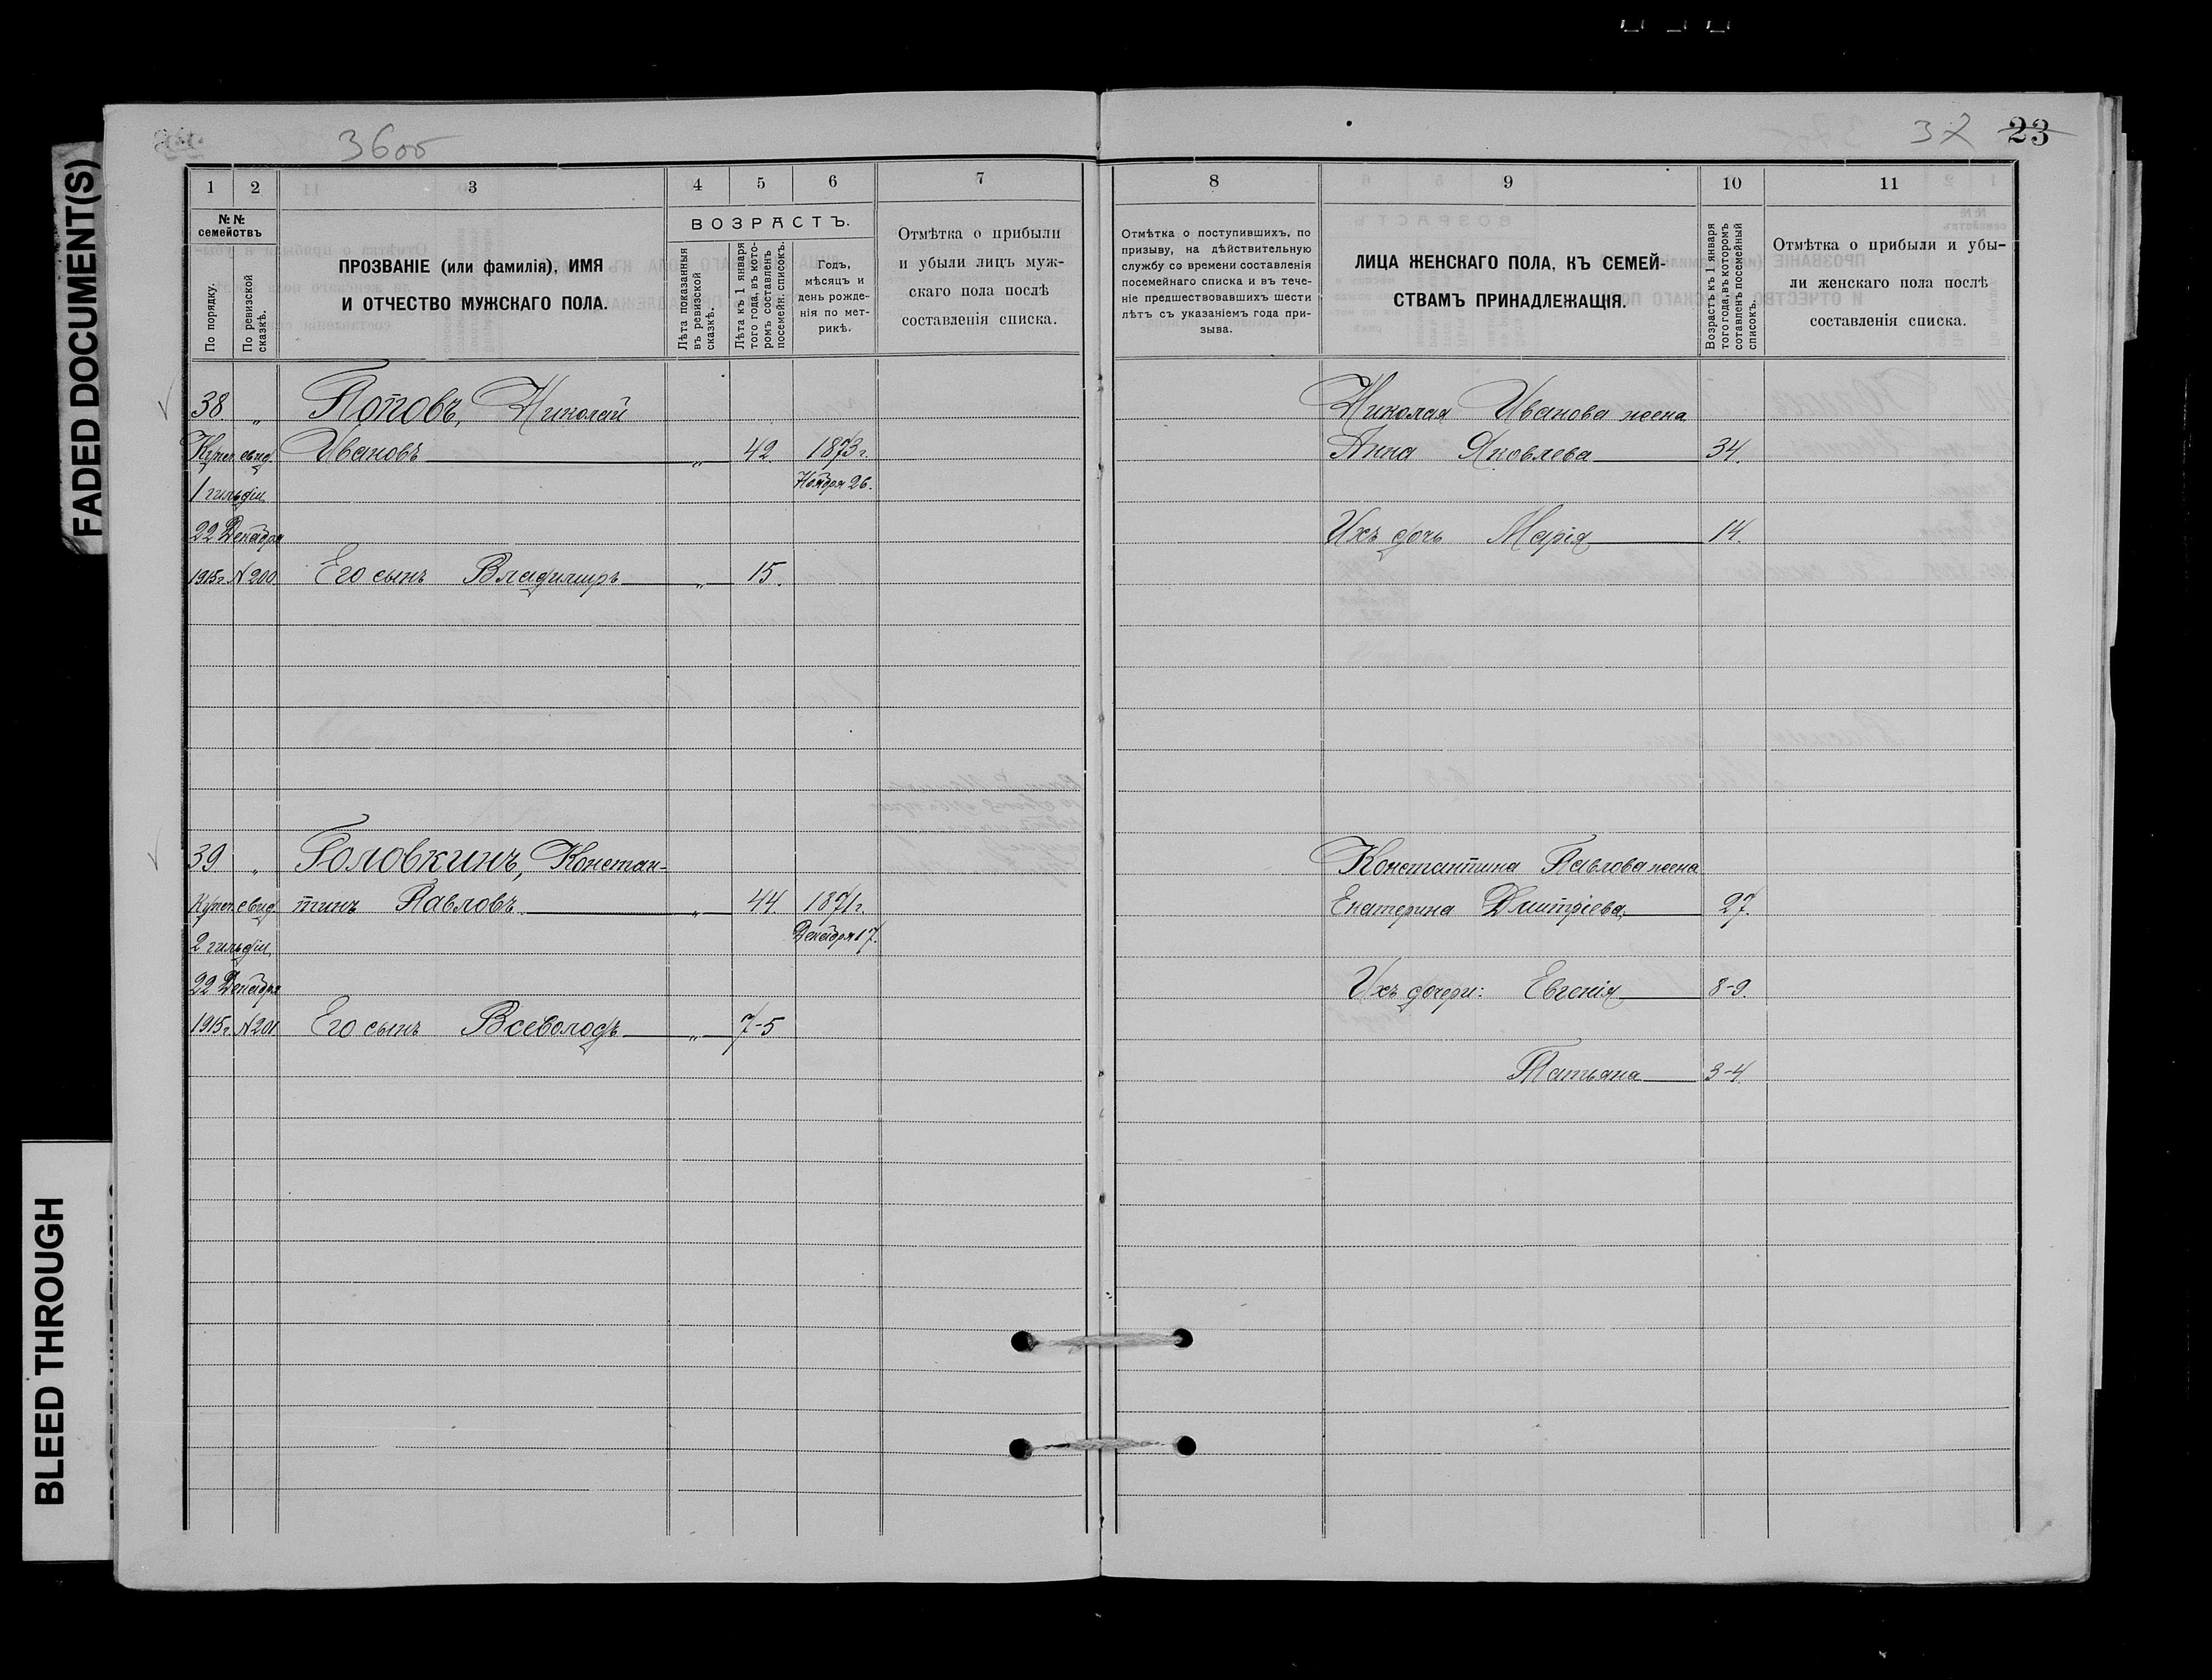 FADED DOCUMENT(S)
BLEED THROUGH
36об
37 23
1 2 3 4 5 6 7
№ № семействъ
По порядку.
По ревизской сказкѣ.
ПРОЗВАНІЕ (или фамилія), ИМЯ
И ОТЧЕСТВО МУЖСКАГО ПОЛА.
ВОЗРАСТЪ.
Лѣта показанныя въ ревизской сказкѣ.
Лѣта къ 1 января того года, въ которомъ составленъ посемейн. списокъ.
Годъ,
мѣсяцъ и
день рожде-
нія по мет-
рикѣ.
Отмѣтка о прибыли
и убыли лицъ муж-
скаго пола послѣ
составленія списка.
38 „ Поповъ, Николай
Купеч. свид. Ивановъ „ 42. 1873 г.
1 гильдіи Ноября 26.
22 Декабря
1915 г. № 200 Его сынъ Владиміръ „ 15.
39 „ Головкинъ, Констан-
Купеч. свид. тинъ Павловъ „ 44. 1871 г.
2 гильдіи Декабря 17.
22 Декабря
1915 г. № 201 Его сынъ Всеволодъ „ 7-5
8 9 10 11
Отмѣтка о поступившихъ, по
призыву, на дѣйствительную
службу со времени составленія
посемейнаго списка и въ тече-
ніе предшествовавшихъ шести
лѣтъ съ указаніемъ года при-
зыва.
ЛИЦА ЖЕНСКАГО ПОЛА, КЪ СЕМЕЙ-
СТВАМЪ ПРИНАДЛЕЖАЩІЯ.
Возрастъ къ 1 января того года, въ которомъ составленъ посемейный списокъ.
Отмѣтка о прибыли и убы-
ли женскаго пола послѣ
составленія списка.
Николая Иванова жена
Анна Яковлева 34.
Ихъ дочь Марія 14.
Константина Павлова жена
Екатерина Дмитріева 27.
Ихъ дочери: Евгенія 8-9.
Татьяна 3-4.